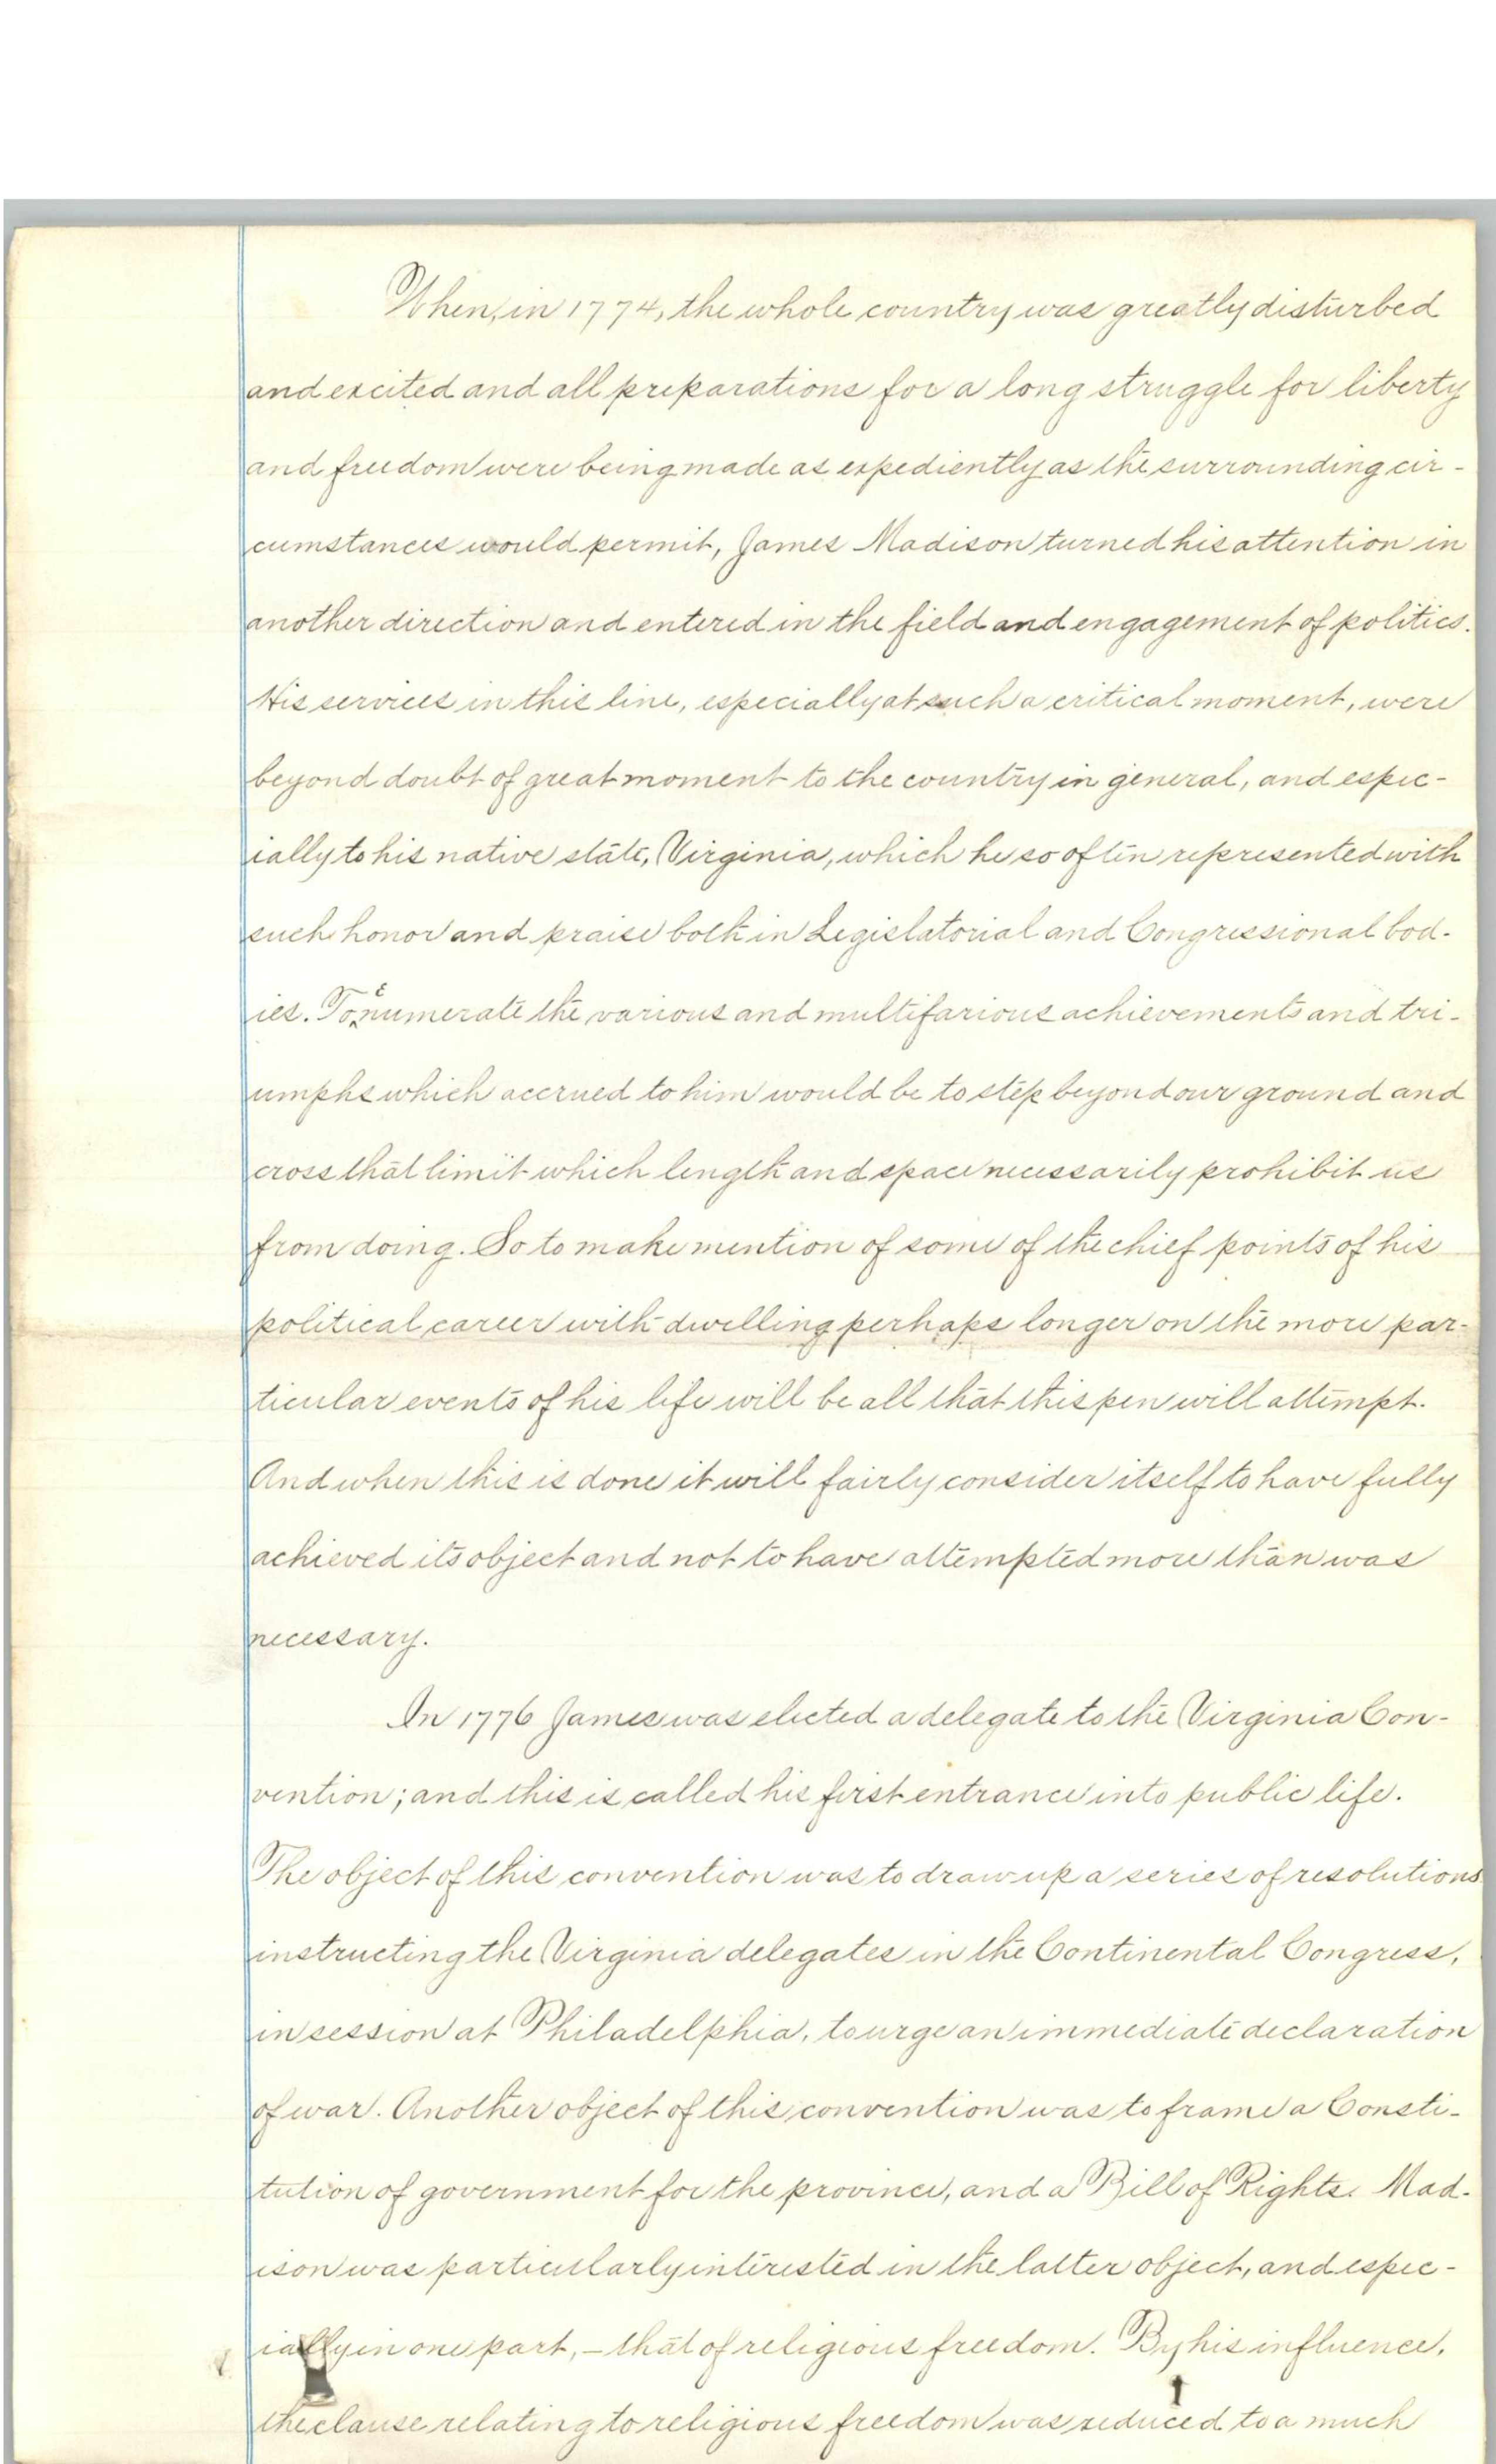 When, in 1774, the whole country was greatly disturbed
and excited and all preparations for a long struggle for liberty
and freedom were being made as expediently as the surrounding cir-
cumstances would permit, James Madison turned his attention in
another direction and entered in the field and engagement of politics.
His services in this line, especially at such a critical moment, were
beyond doubt of great moment to the country in general, and espec-
ially to his native state, Virginia, which he so often represented with
such honor and praise both in Legislatorial and Congressional bod-
ies. To enumerate the various and multifarious achievements and tri-
umphs which accrued to him would be to step beyond our ground and
cross that limit which length and space necessarily prohibit us
from doing. So to make mention of some of the chief points of his
political career with dwelling perhaps longer on the more par-
ticular events of his life will be all that this pen will attempt.
And when this is done it will fairly consider itself to have fully
achieved its object and not to have attempted more than was
necessary.
In 1776 James was elected a delegate to the Virginia Con-
vention; and this is called his first entrance into public life.
The object of this convention was to draw up a series of resolutions
instructing the Virginia delegates in the Continental Congress,
in session at Philadelphia, to urge an immediate declaration
of war. Another object of this convention was to frame a Consti-
tution of government for the province, and a Bill of Rights. Mad-
ison was particularly interested in the latter object, and espec-
ially in one part, – that of religious freedom. By his influence,
the clause relating to religious freedom was reduced to a much